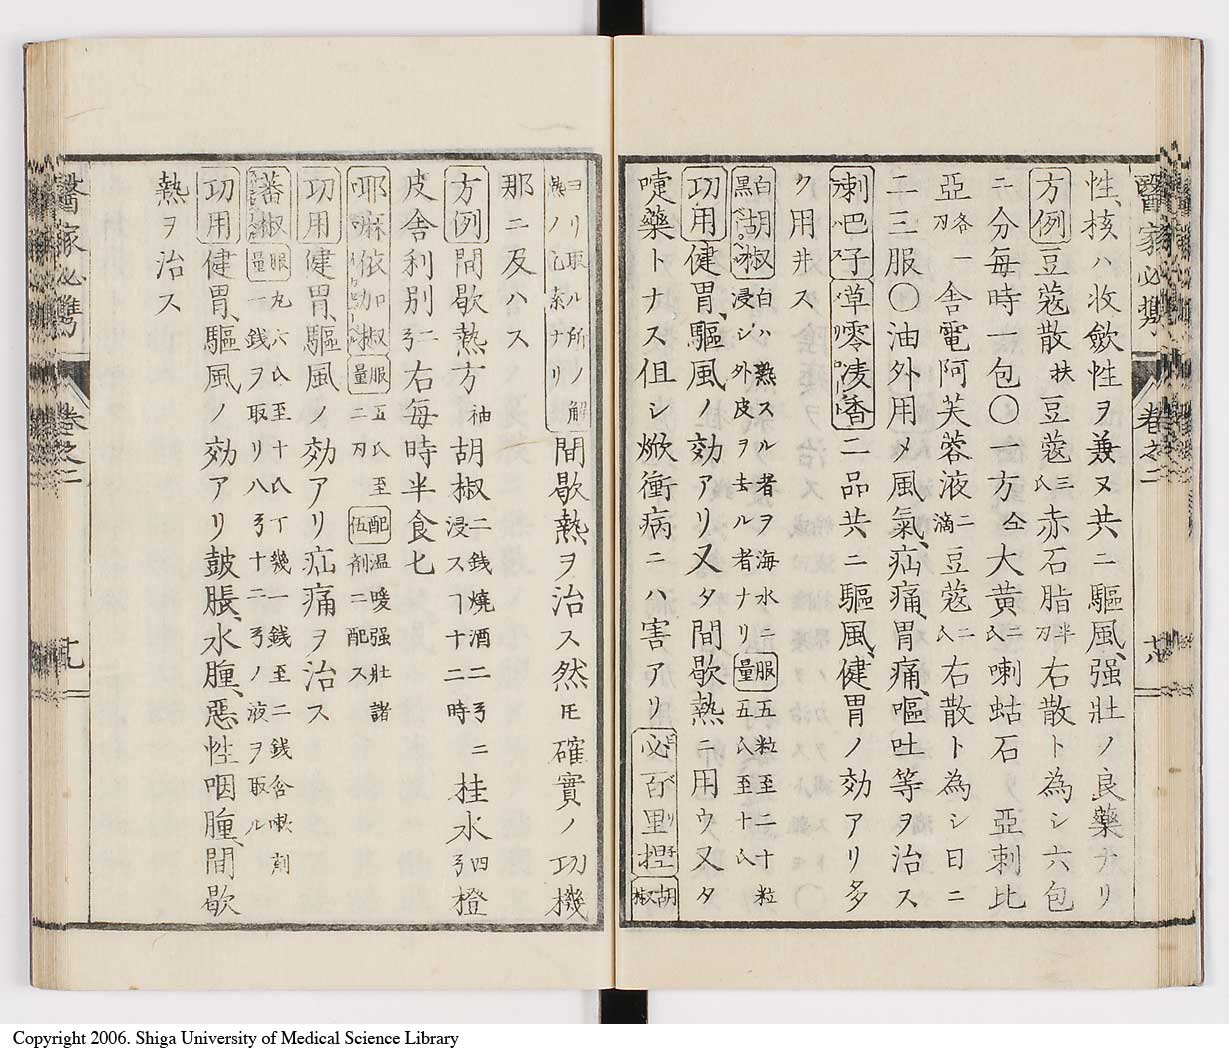 醫家必携 卷之二 十八
性、核ハ收斂性ヲ兼ヌ共ニ驅風、强壯ノ良藥ナリ
方例 豆蔻散 扶 豆蔻 三氏 赤石脂 半刃 右散ト為シ六包
ニ分毎時一包〇方 仝 大黄 二氏 喇蛄石 亞刺比
亞 各一刃 舎電阿芙蓉液 二滴 豆蔻 二氏 右散ト為シ日ニ
二三服〇油外用メ風氣、疝痛、胃痛、嘔吐等ヲ治ス
喇叭子 草零凌香 二品共ニ驅風、健胃ノ効アリ多
ク用井ス
白胡椒 黒胡椒 白ハ熟スル者ヲ海水ニ浸シ外皮ヲ去ル者ナリ 服量 五粒至二十粒 五氏至十氏
功用 健胃、驅風ノ効アリ又タ間歇熱ニ用ウ又タ
嚏藥トナス但シ焮衝病ニハ害アリ 必百里擳 胡椒
ヨリ取ル所ノ解熱ノ乙索ナリ 間歇熱ヲ治ス然トモ確實ノ功機
那ニ及ハス
方例 間歇熱方 袖 胡椒 二銭 燒酒 二弓ニ浸スヿ十二時 桂水 四弓 橙
皮舎利別 二弓 右毎時半食匕
耶麻依加椒 服量 五氏至二刃 配伍 温暖强壯諸劑ニ配ス
功用 健胃、驅風ノ効アリ疝痛ヲ治ス
蕃椒 服量 丸六氏至十氏丁幾一銭至二銭含嗽劑一銭ヲ取リ八弓十二弓ノ液ヲ取ル
功用 健胃、驅風ノ効アリ鼓脹、水腫、惡性咽腫、間歇
熱ヲ治ス
醫家必携 卷之二 十九
Copyright 2006. Shiga University of Medical Science Library